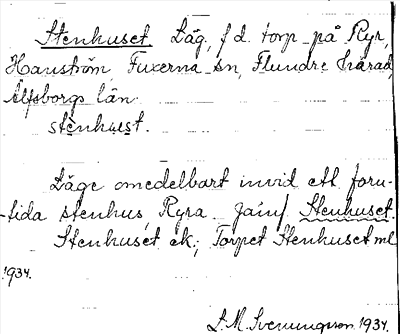 Stenhuset. Läg, f d. torp på Ryr,
Hanström, Fuxerna sn, Flundre härad,
Älfsborgs län.
stènhu̱set.
Läge omedelbart invid ett forn-
tida stenhus, Ryra. Jämf Stenhuset.
Stenhuset ek.; Torpet Stenhuset ml
1934.
L. M. Svenungson 1934.